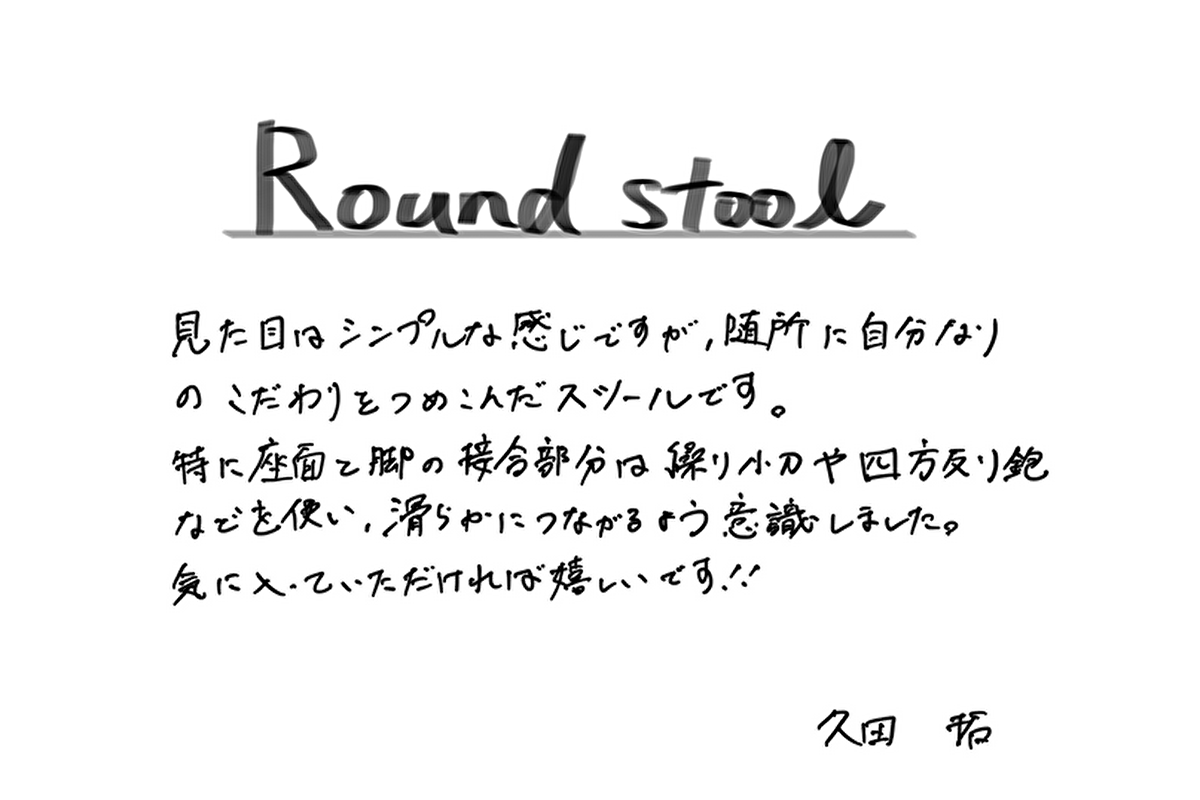 Round stool
見た目はシンプルな感じですが,随所に自分なり
のこだわりをつめこんだスツールです。
特に座面と脚の接合部分は繰り小刀や四方反り鉋
などを使い,滑らかにつながるよう意識しました。
気に入っていただければ嬉しいです!!
久田 拓